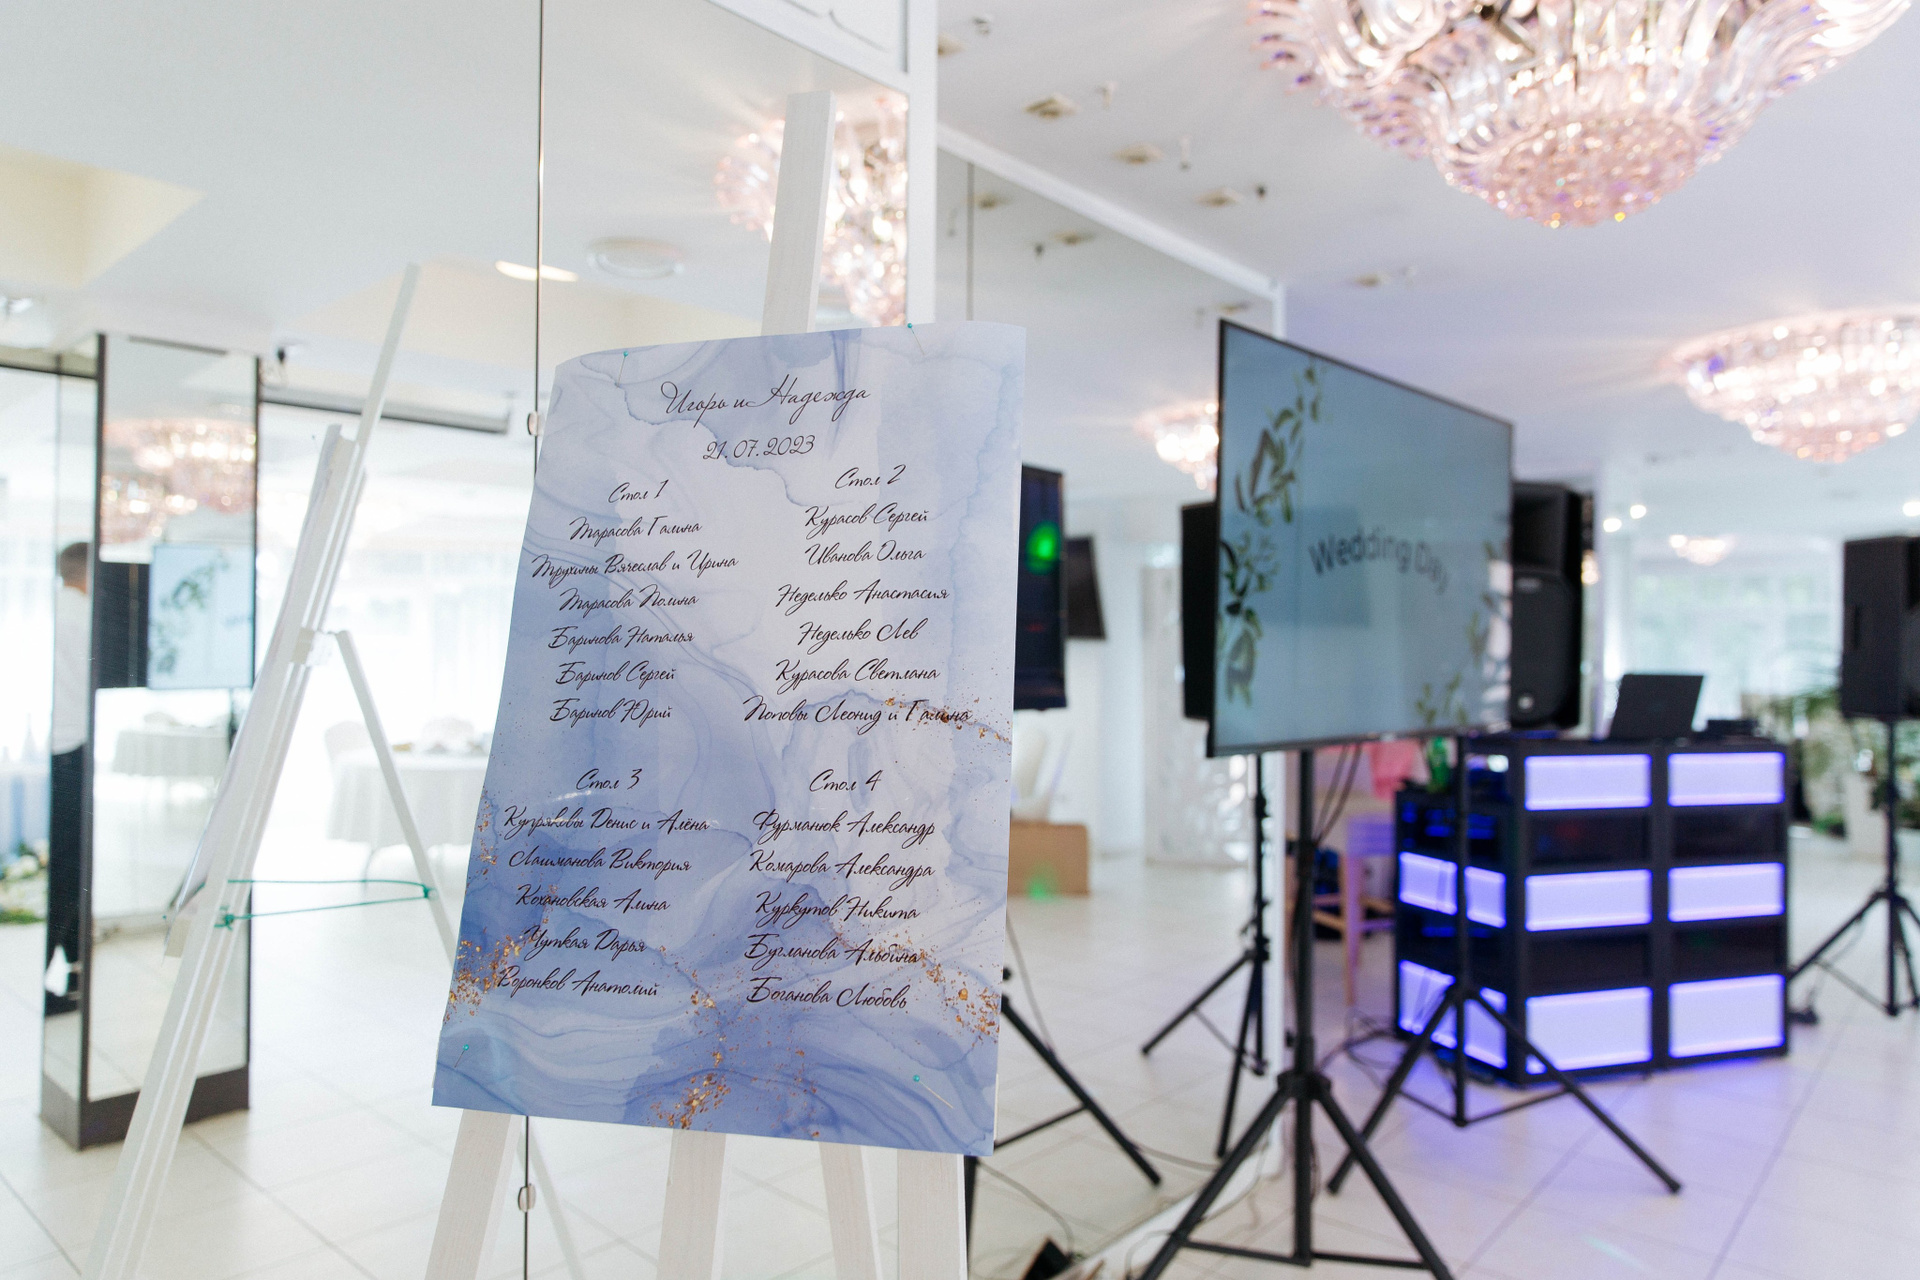 Игорь и Надежда
21.07.2023
Стол 1
Тарасова Галина
Трухины Вячеслав и Ирина
Тарасова Полина
Баринова Наталья
Баринов Сергей
Баринов Юрий
Стол 2
Курасов Сергей
Иванова Ольга
Неделько Анастасия
Неделько Лев
Курасова Светлана
Поповы Леонид и Галина
Стол 3
Купряковы Денис и Алёна
Лашманова Виктория
Кохановская Алина
Чуткая Дарья
Воронков Анатолий
Стол 4
Фурманюк Александр
Комарова Александра
Куркутов Никита
Бугланова Альбина
Боганова Любовь
Wedding Day